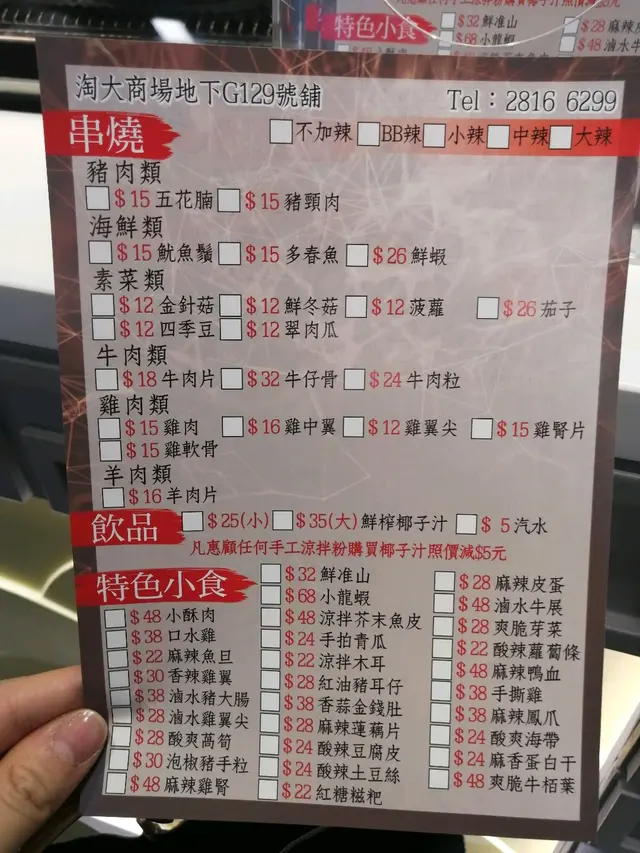 特色小食 $32 鮮准山
$68 小龍蝦 $48 滷水牛
淘大商場地下G129號舖 Tel：2816 6299
串燒 不加辣 BB辣 小辣 中辣 大辣
豬肉類
$15 五花腩 $15 豬頸肉
海鮮類
$15 魷魚鬚 $15 多春魚 $26 鮮蝦
素菜類
$12 金針菇 $12 鮮冬菇 $12 菠蘿 $26 茄子
$12 四季豆 $12 翠肉瓜
牛肉類
$18 牛肉片 $32 牛仔骨 $24 牛肉粒
雞肉類
$15 雞肉 $16 雞中翼 $12 雞翼尖 $15 雞腎片
$15 雞軟骨
羊肉類
$16 羊肉片
飲品 $25(小) $35(大) 鮮榨椰子汁 $ 5 汽水
凡惠顧任何手工涼拌粉購買椰子汁照價減$5元
特色小食
$48 小酥肉
$38 口水雞
$22 麻辣魚旦
$30 香辣雞翼
$38 滷水豬大腸
$28 滷水雞翼尖
$28 酸爽萵筍
$30 泡椒豬手粒
$48 麻辣雞腎
$32 鮮准山
$68 小龍蝦
$48 涼拌芥末魚皮
$24 手拍青瓜
$22 涼拌木耳
$28 紅油豬耳仔
$38 香蒜金錢肚
$28 麻辣蓮藕片
$24 酸辣豆腐皮
$24 酸辣土豆絲
$22 紅糖糍粑
$28 麻辣皮蛋
$48 滷水牛展
$28 爽脆芽菜
$22 酸辣蘿蔔條
$48 麻辣鴨血
$38 手撕雞
$38 麻辣鳳爪
$24 酸爽海帶
$24 麻香蛋白干
$48 爽脆牛栢葉